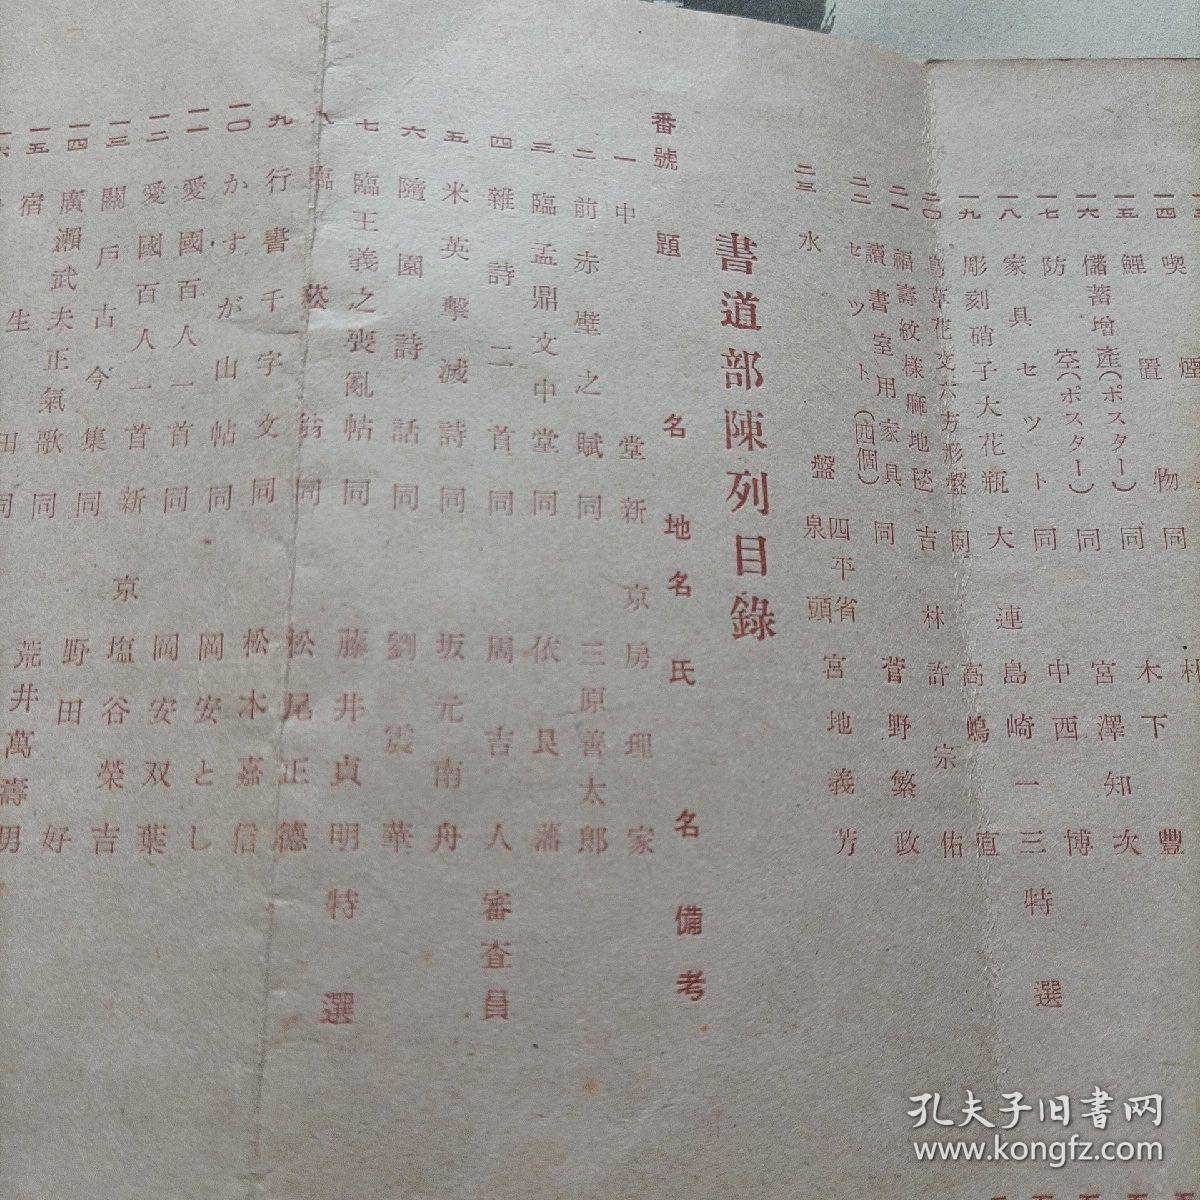 一四 喫煙 置物 同 木下 豐
一五 鯉 同 宮澤知次
一六 儲蓄增產(ポスター) 同 中西 博
一七 防空(ポスター) 同 島崎一三 特選
一八 家具セット 同
一九 彫刻硝子大花瓶 大連 高嶋
二〇 草花文六方形盤 同 許宗佑
二一 福壽紋樣麻地毯 吉林
二二 讀書室用家具セット(四個) 同 菅野繁政
二三 水盤 四平省泉頭 宮地義芳
書道部陳列目錄
番號 題名 地名 氏名 備考
一 中堂 新京 房理家
二 前赤壁之賦 同 三原善太郎
三 臨孟鼎文中堂 同 依艮藩
四 雜詩二首 同 周吉人 審查員
五 米英擊滅詩 同 坂元南舟
六 隨園詩話 同 劉震華
七 臨王義之喪亂帖 同 藤井貞明 特選
八 臨 同 松尾正德
九 行書千字文 同 松木嘉信
一〇 かすが山帖 同 岡安とし
一一 愛國百人一首 同 岡安双葉
一二 愛國百人一首 新京 塩谷榮吉
一三 關戶古今集 同 野田好
一四 廣瀨武夫正氣歌 同 荒井萬壽男
一五 宿生田 同
孔夫子旧书网
www.kongfz.com